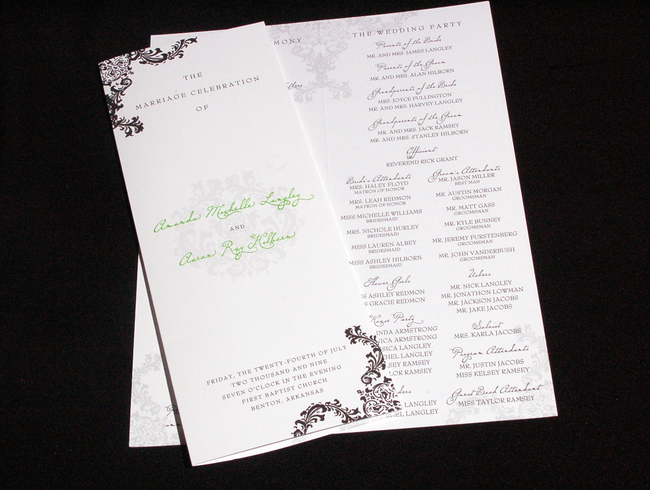 THE
MARRIAGE CELEBRATION
OF
Amanda Machelle Langley
AND
Aaron Ray Hilborn
FRIDAY, THE TWENTY-FOURTH OF JULY
TWO THOUSAND AND NINE
SEVEN O'CLOCK IN THE EVENING
FIRST BAPTIST CHURCH
BENTON, ARKANSAS
MONY
THE WEDDING PARTY
Parents of the Bride
MR. AND MRS. JAMES LANGLEY
Parents of the Groom
MR. AND MRS. ALAN HILBORN
Grandparents of the Bride
MRS. JOYCE FULLINGTON
MR. AND MRS. HARVEY LANGLEY
Grandparents of the Groom
MR. AND MRS. JACK RAMSEY
MR. AND MRS. STANLEY HILBORN
Officiant
REVEREND RICK GRANT
Bride's Attendants
MRS. HALEY FLOYD
MATRON OF HONOR
MRS. LEAH REDMON
MATRON OF HONOR
MISS MICHELLE WILLIAMS
BRIDESMAID
MRS. NICHOLE HURLEY
BRIDESMAID
MISS LAUREN ALBEY
BRIDESMAID
MISS ASHLEY HILBORN
BRIDESMAID
Flower Girls
S ASHLEY REDMON
S GRACIE REDMON
House Party
NDA ARMSTRONG
SICA LANGLEY
HEL LANGLEY
SEY RAMSEY
EL RAMSEY
EL RAMSEY
EL LANGLEY
Groom's Attendants
MR. JASON MILLER
BEST MAN
MR. AUSTIN MORGAN
GROOMSMAN
MR. MATT GASS
GROOMSMAN
MR. KYLE BUNNEY
GROOMSMAN
MR. JEREMY FURSTENBERG
GROOMSMAN
MR. JOHN VANDERBUSH
GROOMSMAN
Ushers
MR. NICK LANGLEY
MR. JONATHON LOWMAN
MR. JACKSON JACOBS
MR. JAKE JACOBS
Soloist
MRS. KARLA JACOBS
Program Attendants
MR. JUSTIN JACOBS
MISS KELSEY RAMSEY
Guest Book Attendant
MISS TAYLOR RAMSEY